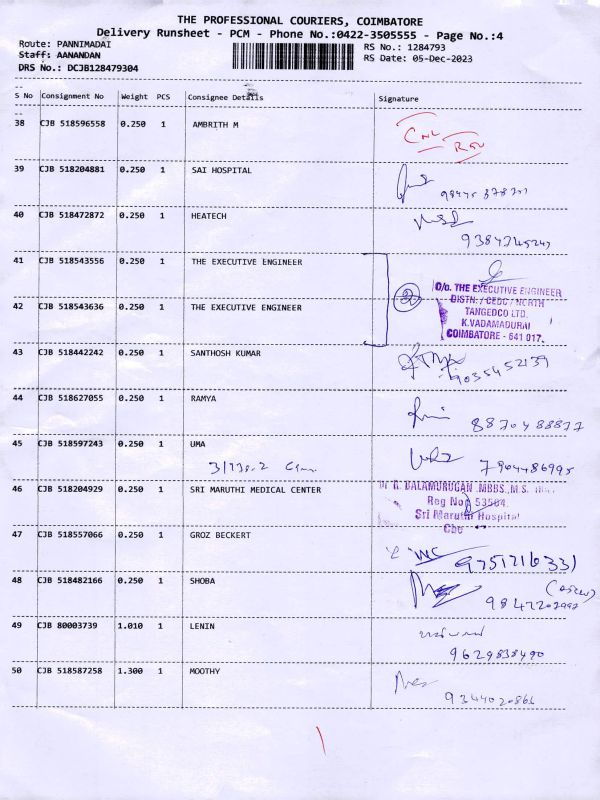 THE PROFESSIONAL COURIERS, COIMBATORE
Delivery Runsheet - PCM - Phone No.:0422-3505555 - Page No.:4
Route: PANNIMADAI
RS No.: 1284793
Staff: AANANDAN
RS Date: 05-Dec-2023
DRS No.: DCJB128479304
S No Consignment No Weight PCS Consignee Details Signature
38 CJB 518596558 0.250 1 AMBRITH M
39 CJB 518204881 0.250 1 SAI HOSPITAL
40 CJB 518472872 0.250 1 HEATECH
41 CJB 518543556 0.250 1 THE EXECUTIVE ENGINEER
42 CJB 518543636 0.250 1 THE EXECUTIVE ENGINEER
2
O/o. THE EXECUTIVE ENGINEER
DISTN. / CEDC / NORTH
TANGEDCO LTD.
K.VADAMADURAI
COIMBATORE - 641 017.
43 CJB 518442242 0.250 1 SANTHOSH KUMAR
9035452139
44 CJB 518627055 0.250 1 RAMYA
8870488877
45 CJB 518597243 0.250 1 UMA
7904486995
46 CJB 518204929 0.250 1 SRI MARUTHI MEDICAL CENTER
Dr. R. BALAMURUGAN .MBBS.,M.S.
Reg No. 53584
Sri Maruthi Hospital
Cbe
47 CJB 518557066 0.250 1 GROZ BECKERT
9751216331
48 CJB 518482166 0.250 1 SHOBA
49 CJB 80003739 1.010 1 LENIN
9629838490
50 CJB 518587258 1.300 1 MOOTHY
9344020866